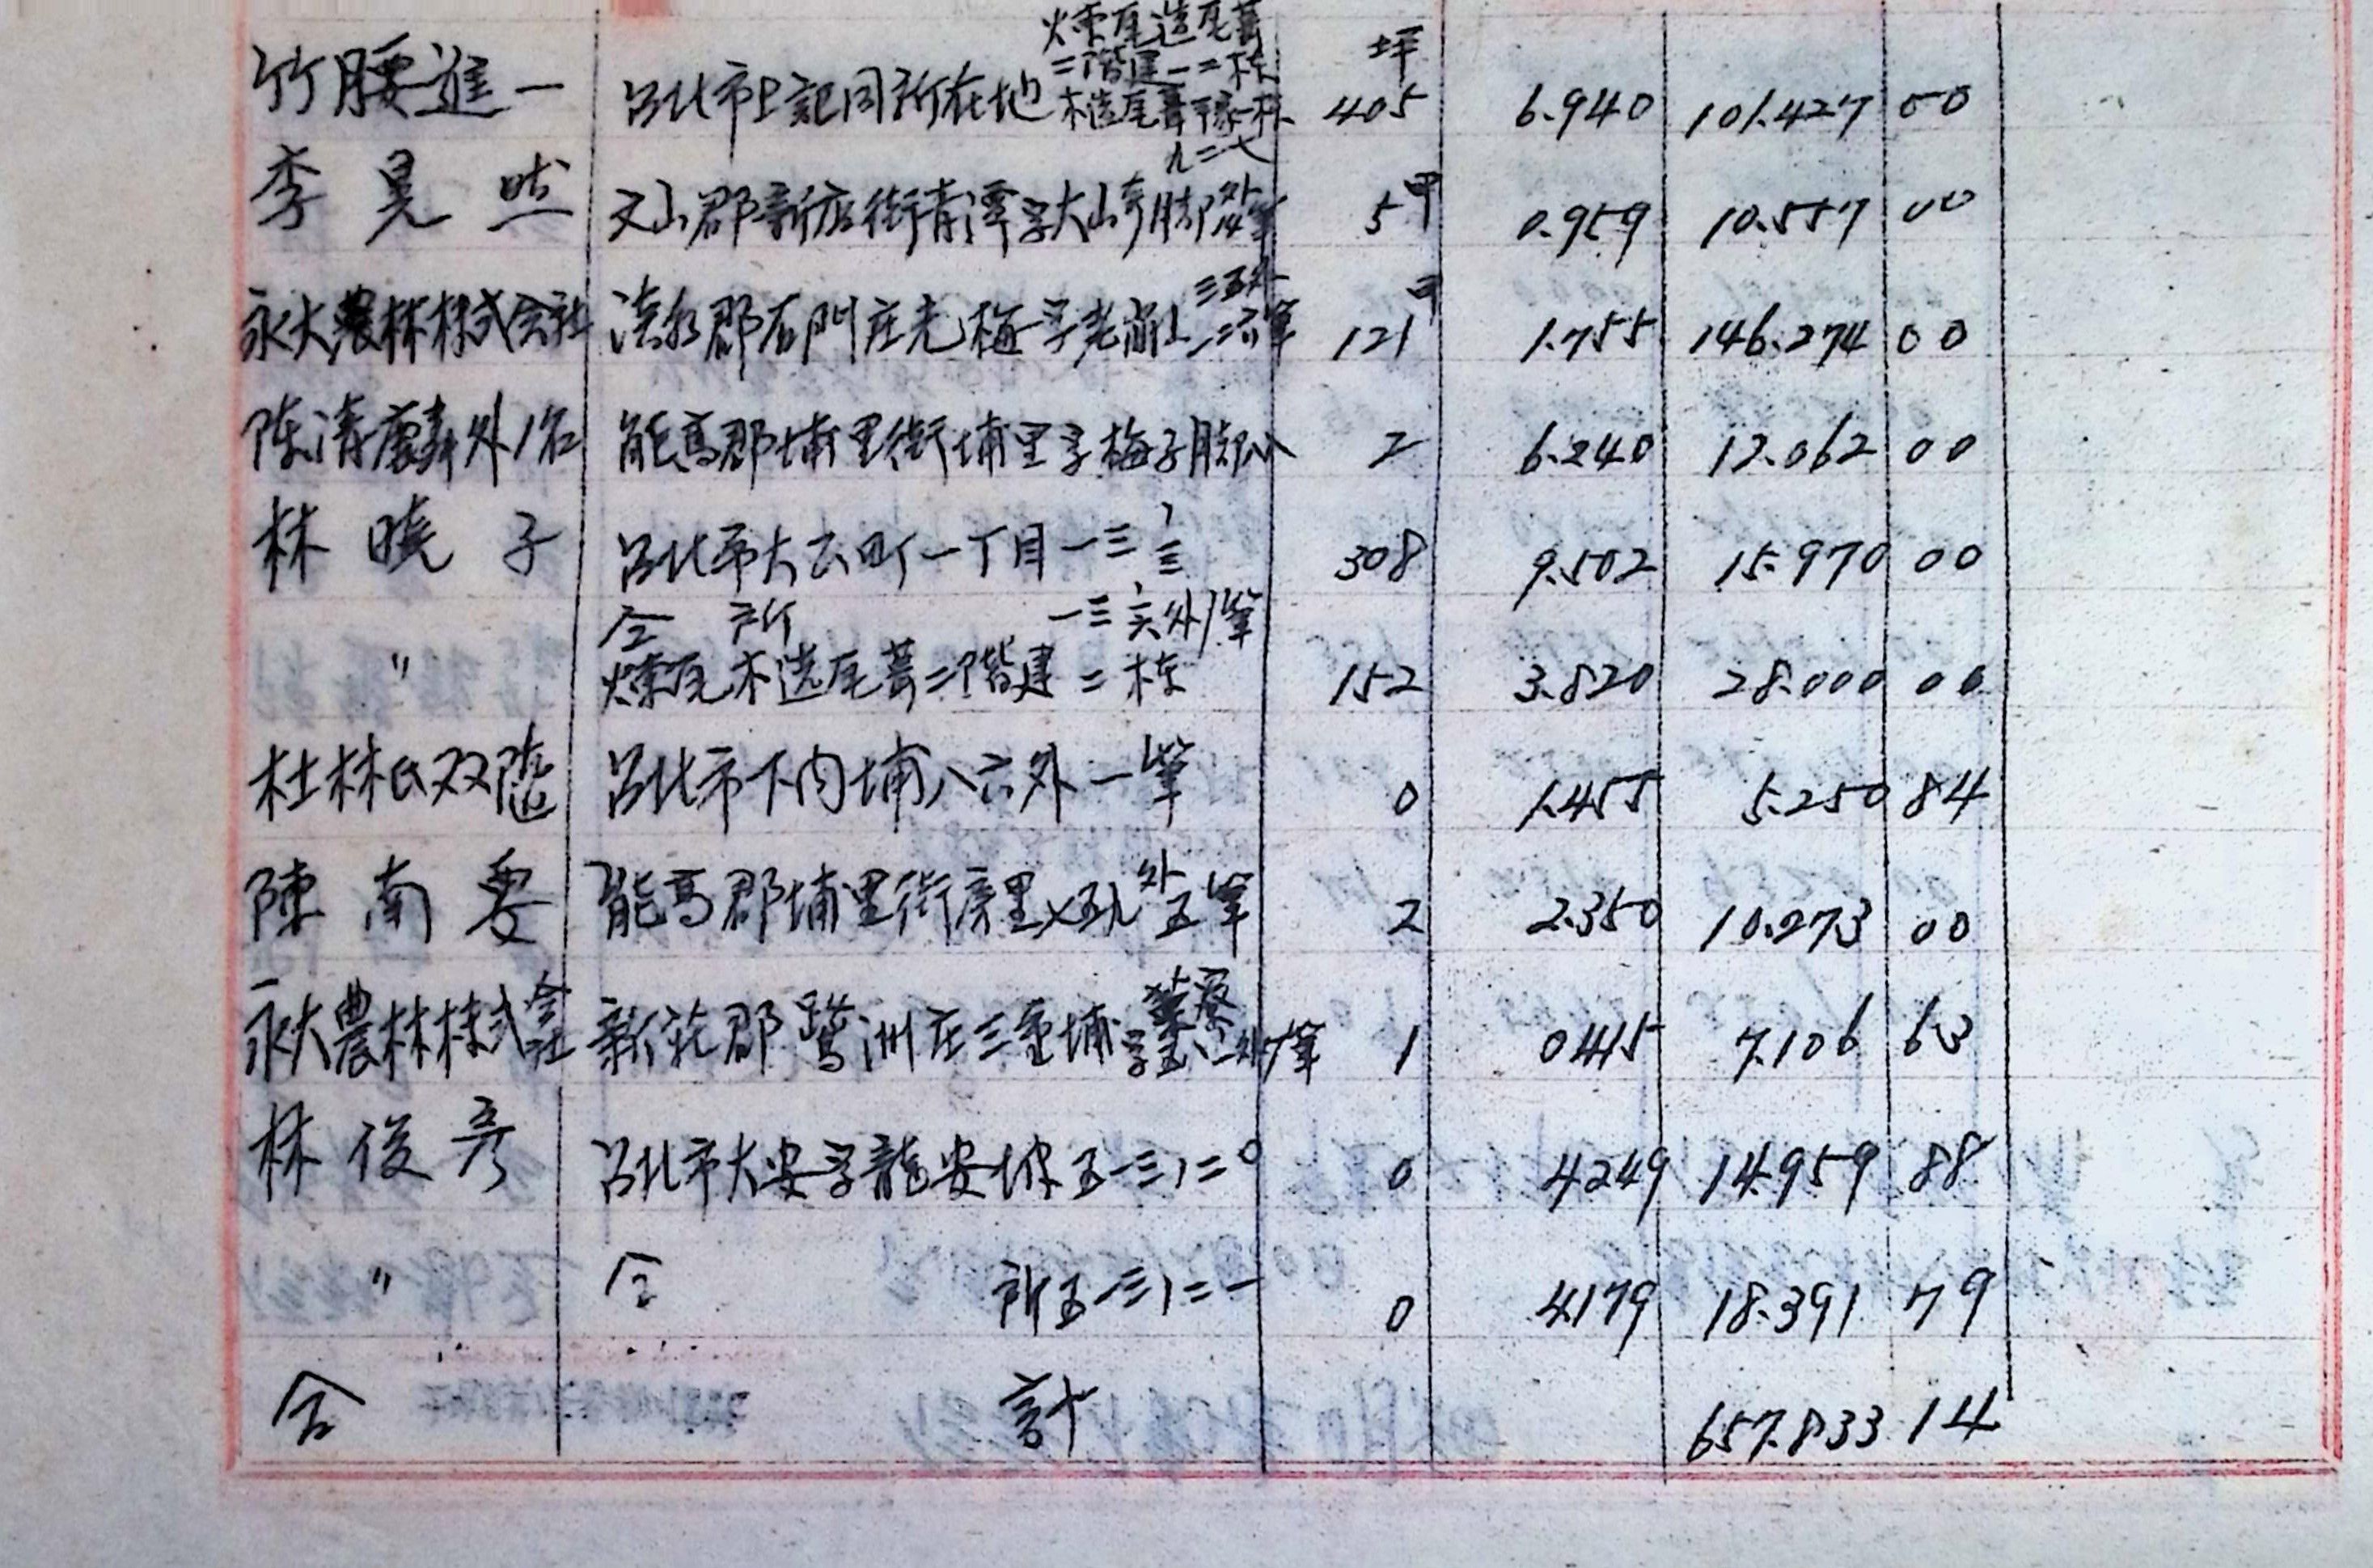 煉瓦造瓦葺
二階建一二棟
竹腰進一 台北市上記同所在地 木造瓦葺平家一棟 坪 405 6.940 101.427 00
九二七
李晃然 文山郡新店街青潭字大崎脚 外 筆 5甲 0.959 10.557 00
永大農林株式会社 淡水郡石門庄老梅字老崩山 三五外二六筆 121甲 1.755 146.274 00
陳清麟外1名 能高郡埔里街埔里字梅子脚八 2 6.240 12.062 00
林暁子 台北市大正町一丁目一三ノ三 308 9.502 15.970 00
仝所 一三ノ六外1筆
〃 煉瓦木造瓦葺二階建二棟 152 3.820 28.000 00
杜林氏双随 台北市下内埔八六外一筆 0 1.455 5.250 84
陳南要 能高郡埔里街房里 外五筆 2 2.350 10.273 00
永大農林株式会社 新莊郡鷺洲庄三重埔字 筆 1 0445 7.106 63
林俊彦 台北市大安字龍安坡五一三ノ二〇 0 4249 14.959 88
〃 仝所五一三ノ二一 0 4.179 18.391 79
合計 657.833 14